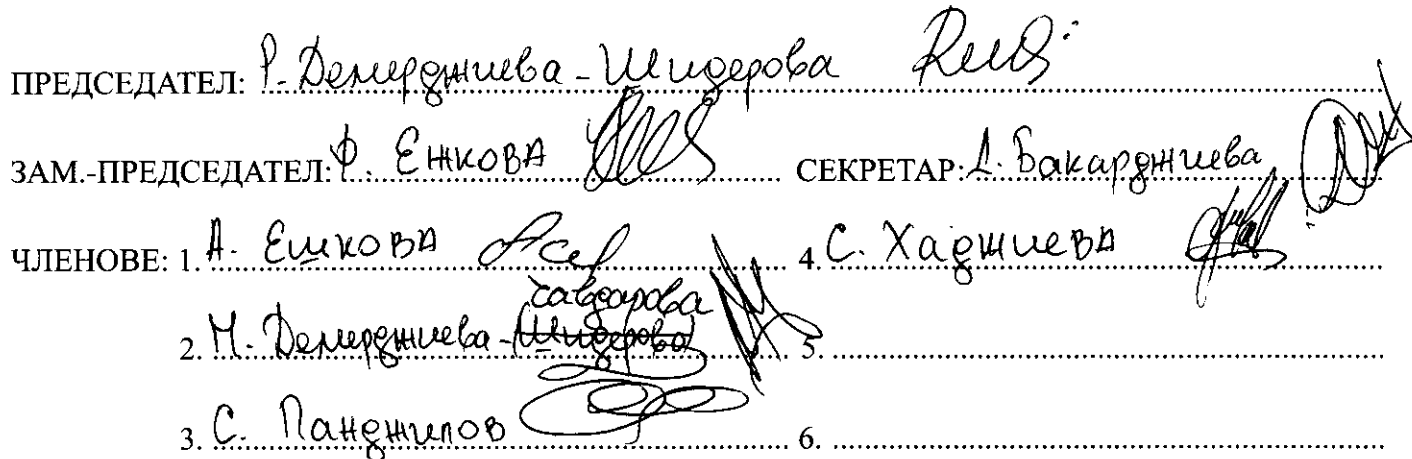 ПРЕДСЕДАТЕЛ: Р. Демерджиева - Шидерова
ЗАМ.-ПРЕДСЕДАТЕЛ: Ф. Енкова СЕКРЕТАР: Д. Бакарджиева
ЧЛЕНОВЕ: 1. А. Ешкова 4. С. Хаджиева
Чавдарова
2. М. Демерджиева - Шидерова 5.
3. С. Панджилов 6.